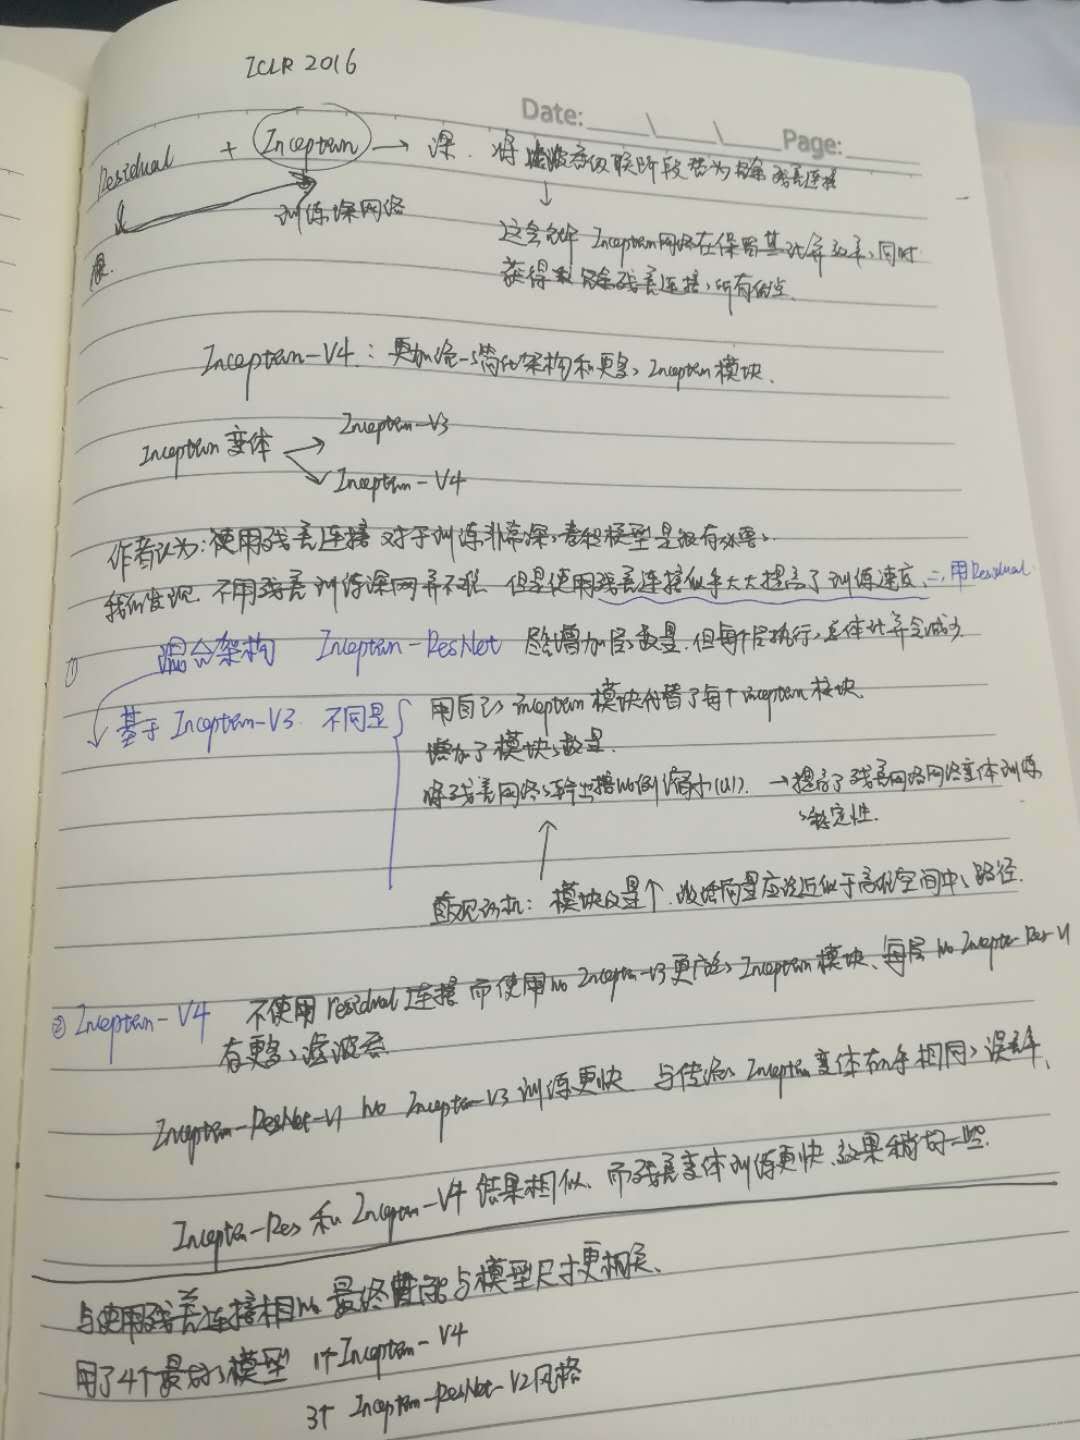 ICLR 2016
Date: Page:
Residual + Inception → 深. 将滤波器级联阶段替为残差连接
训练深网络
这会允许 Inception网络在保留其计算效率、同时
获得残差连接、所有优点.
Inception-V4: 更加统一、简化架构和更多、Inception 模块.
Inception 变体 Inception-V3
Inception-V4
作者认为: 使用残差连接对于训练非常深、卷积模型是很有必要、
我们发现 不用残差训练深网并不难 但是使用残差连接似乎大大提高了训练速度 ∴用Residual
① 混合架构 Inception-ResNet 尽管增加层、数量,但每个层执行、总体计算会减少
基于 Inception-V3. 不同是 用自己、inception 模块代替了每个 inception 模块.
增加了模块、数量.
将残差网络、输出按比例缩小(0.1). → 提高了残差网络网络变体训练
、稳定性.
直观动机: 模块数量↑ 激活向量应该近似于高维空间中、路径.
② Inception-V4 不使用 residual 连接 而使用比 Inception-V3更统一、Inception 模块、每层比 Inception-Res-V1
有更多、滤波器
Inception-ResNet-V1 比 Inception-V3 训练更快 与传统、Inception变体有几乎相同、误差率、
Inception-Res 和 Inception-V4 结果相似、而残差变体训练更快、效果稍好一些.
与使用残差连接相比、最终性能与模型尺寸更相关、
用了4个最好、模型 1个Inception-V4
3个 Inception-ResNet-V2风格